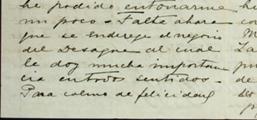 he podido entonarme
un poco - Falta ahora
que se enderege el negocio
del Desague al cual
le doy mucha importan
cia en todos sentidos.
Para colmo de felicidad